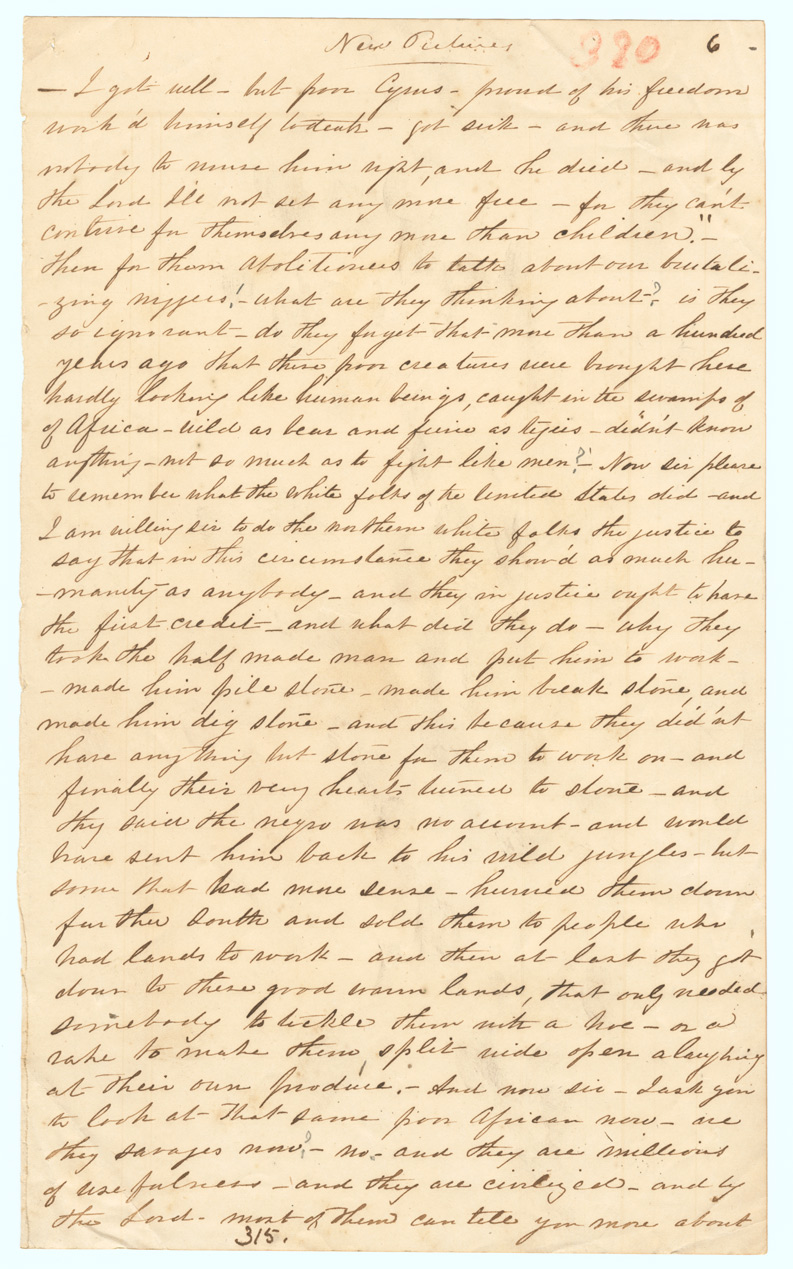 New Pictures
990
6 -
— I got well — but poor Cyrus — proud of his freedom
work'd himself to death — got sick — and there was
nobody to nurse him right, and he died — and by
the Lord I'll not set any more free — for they can't
contrive for themselves any more than children". —
Then for them abolitioners to talk about our brutali-
-zing niggers! — what are they thinking about —? is they
so ignorant — do they forget that more than a hundred
years ago that these poor creatures were brought here
hardly looking like human beings, caught in the swamps of
of Africa — wild as bear and fierce as tigers — didn't know
anything — not so much as to fight like men?! — Now sir please
to remember what the white folks of the United States did — and
I am willing sir to do the northern white folks the justice to
say that in this circumstance they show'd as much hu-
-manity as anybody — and they in justice ought to have
the first credit — and what did they do — why they
took the half made man and put him to work —
— made him pile stone — made him break stone, and
made him dig stone — and this because they did'nt
have anything but stone for them to work on — and
finally their very hearts turned to stone — and
they said the negro was no account — and would
have sent him back to his wild jungles — but
some that had more sense — hurried them down
further South and sold them to people who
had lands to work — and then at last they got
down to these good warm lands, that only needed
somebody to tickle them with a hoe — or a
rake to make them split wide open a laughing
at their own produce. — And now sir — I ask you
to look at that same poor African now — are
they savages now? — no — and they are millions
of usefulness — and they are civilized — and by
the Lord — most of them can tell you more about
315.